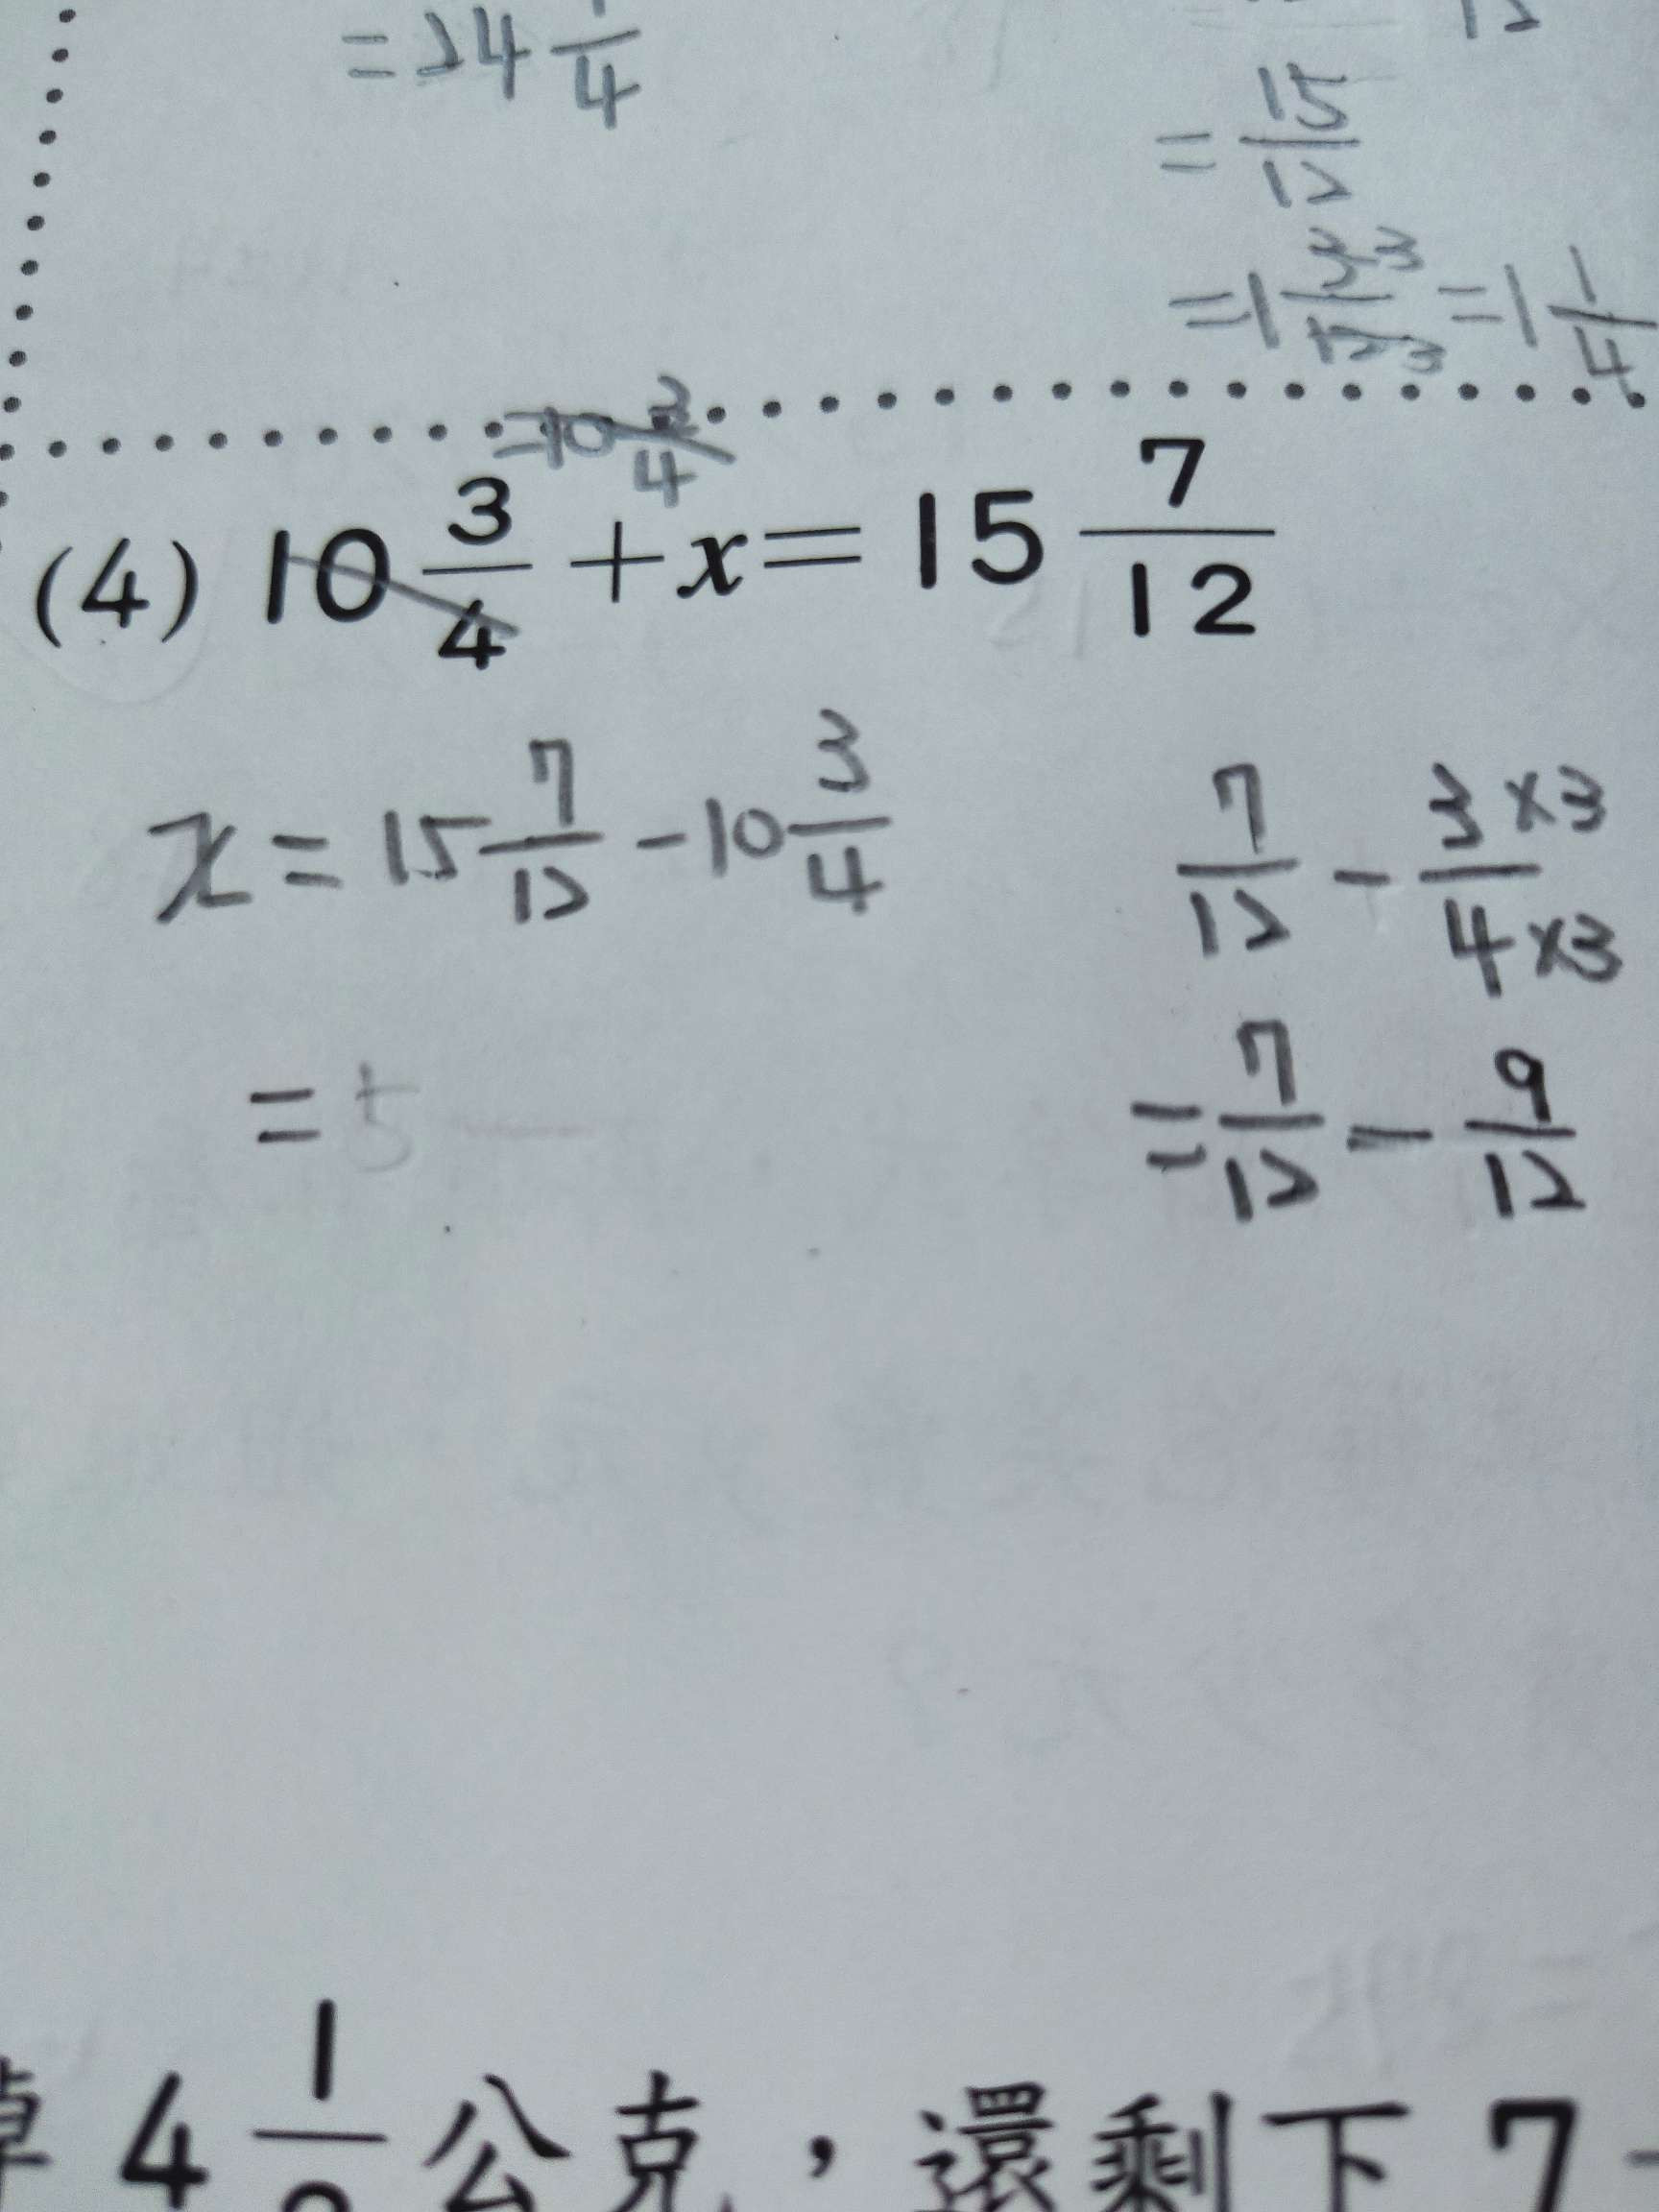 =24 1/4
12
= 15/12
=1 3/12 =1 1/4
=10 3/4
(4) 10 3/4 + x = 15 7/12
x = 15 7/12 - 10 3/4
7/12 - 3×3/4×3
= 5
= 7/12 - 9/12
4 1/ 公克，還剩下 7